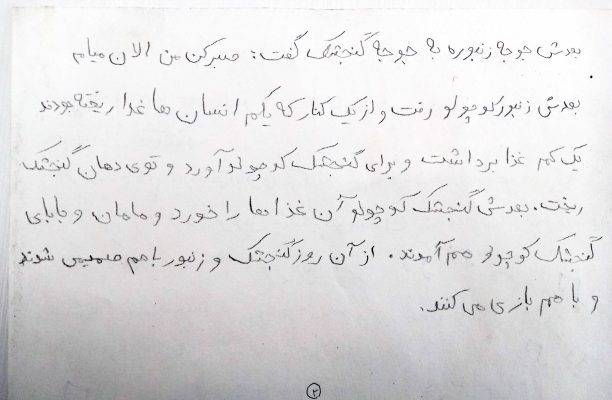 بعدش جوجه زنبوره به جوجه گنجشک گفت: صبر کن من الان میام
بعدش زنبور کوچولو رفت و از یک کنار که یکم انسان ها غذا ریخته بودند
یک کم غذا برداشت و برای گنجشک کوچولو آورد و توی دهان گنجشک
ریخت. بعدش گنجشک کوچولو آن غذاها را خورد و مامان و بابای
گنجشک کوچولو هم آمدند. از آن روز گنجشک و زنبور باهم صمیمی شوند
و با هم بازی می کنند.
۲